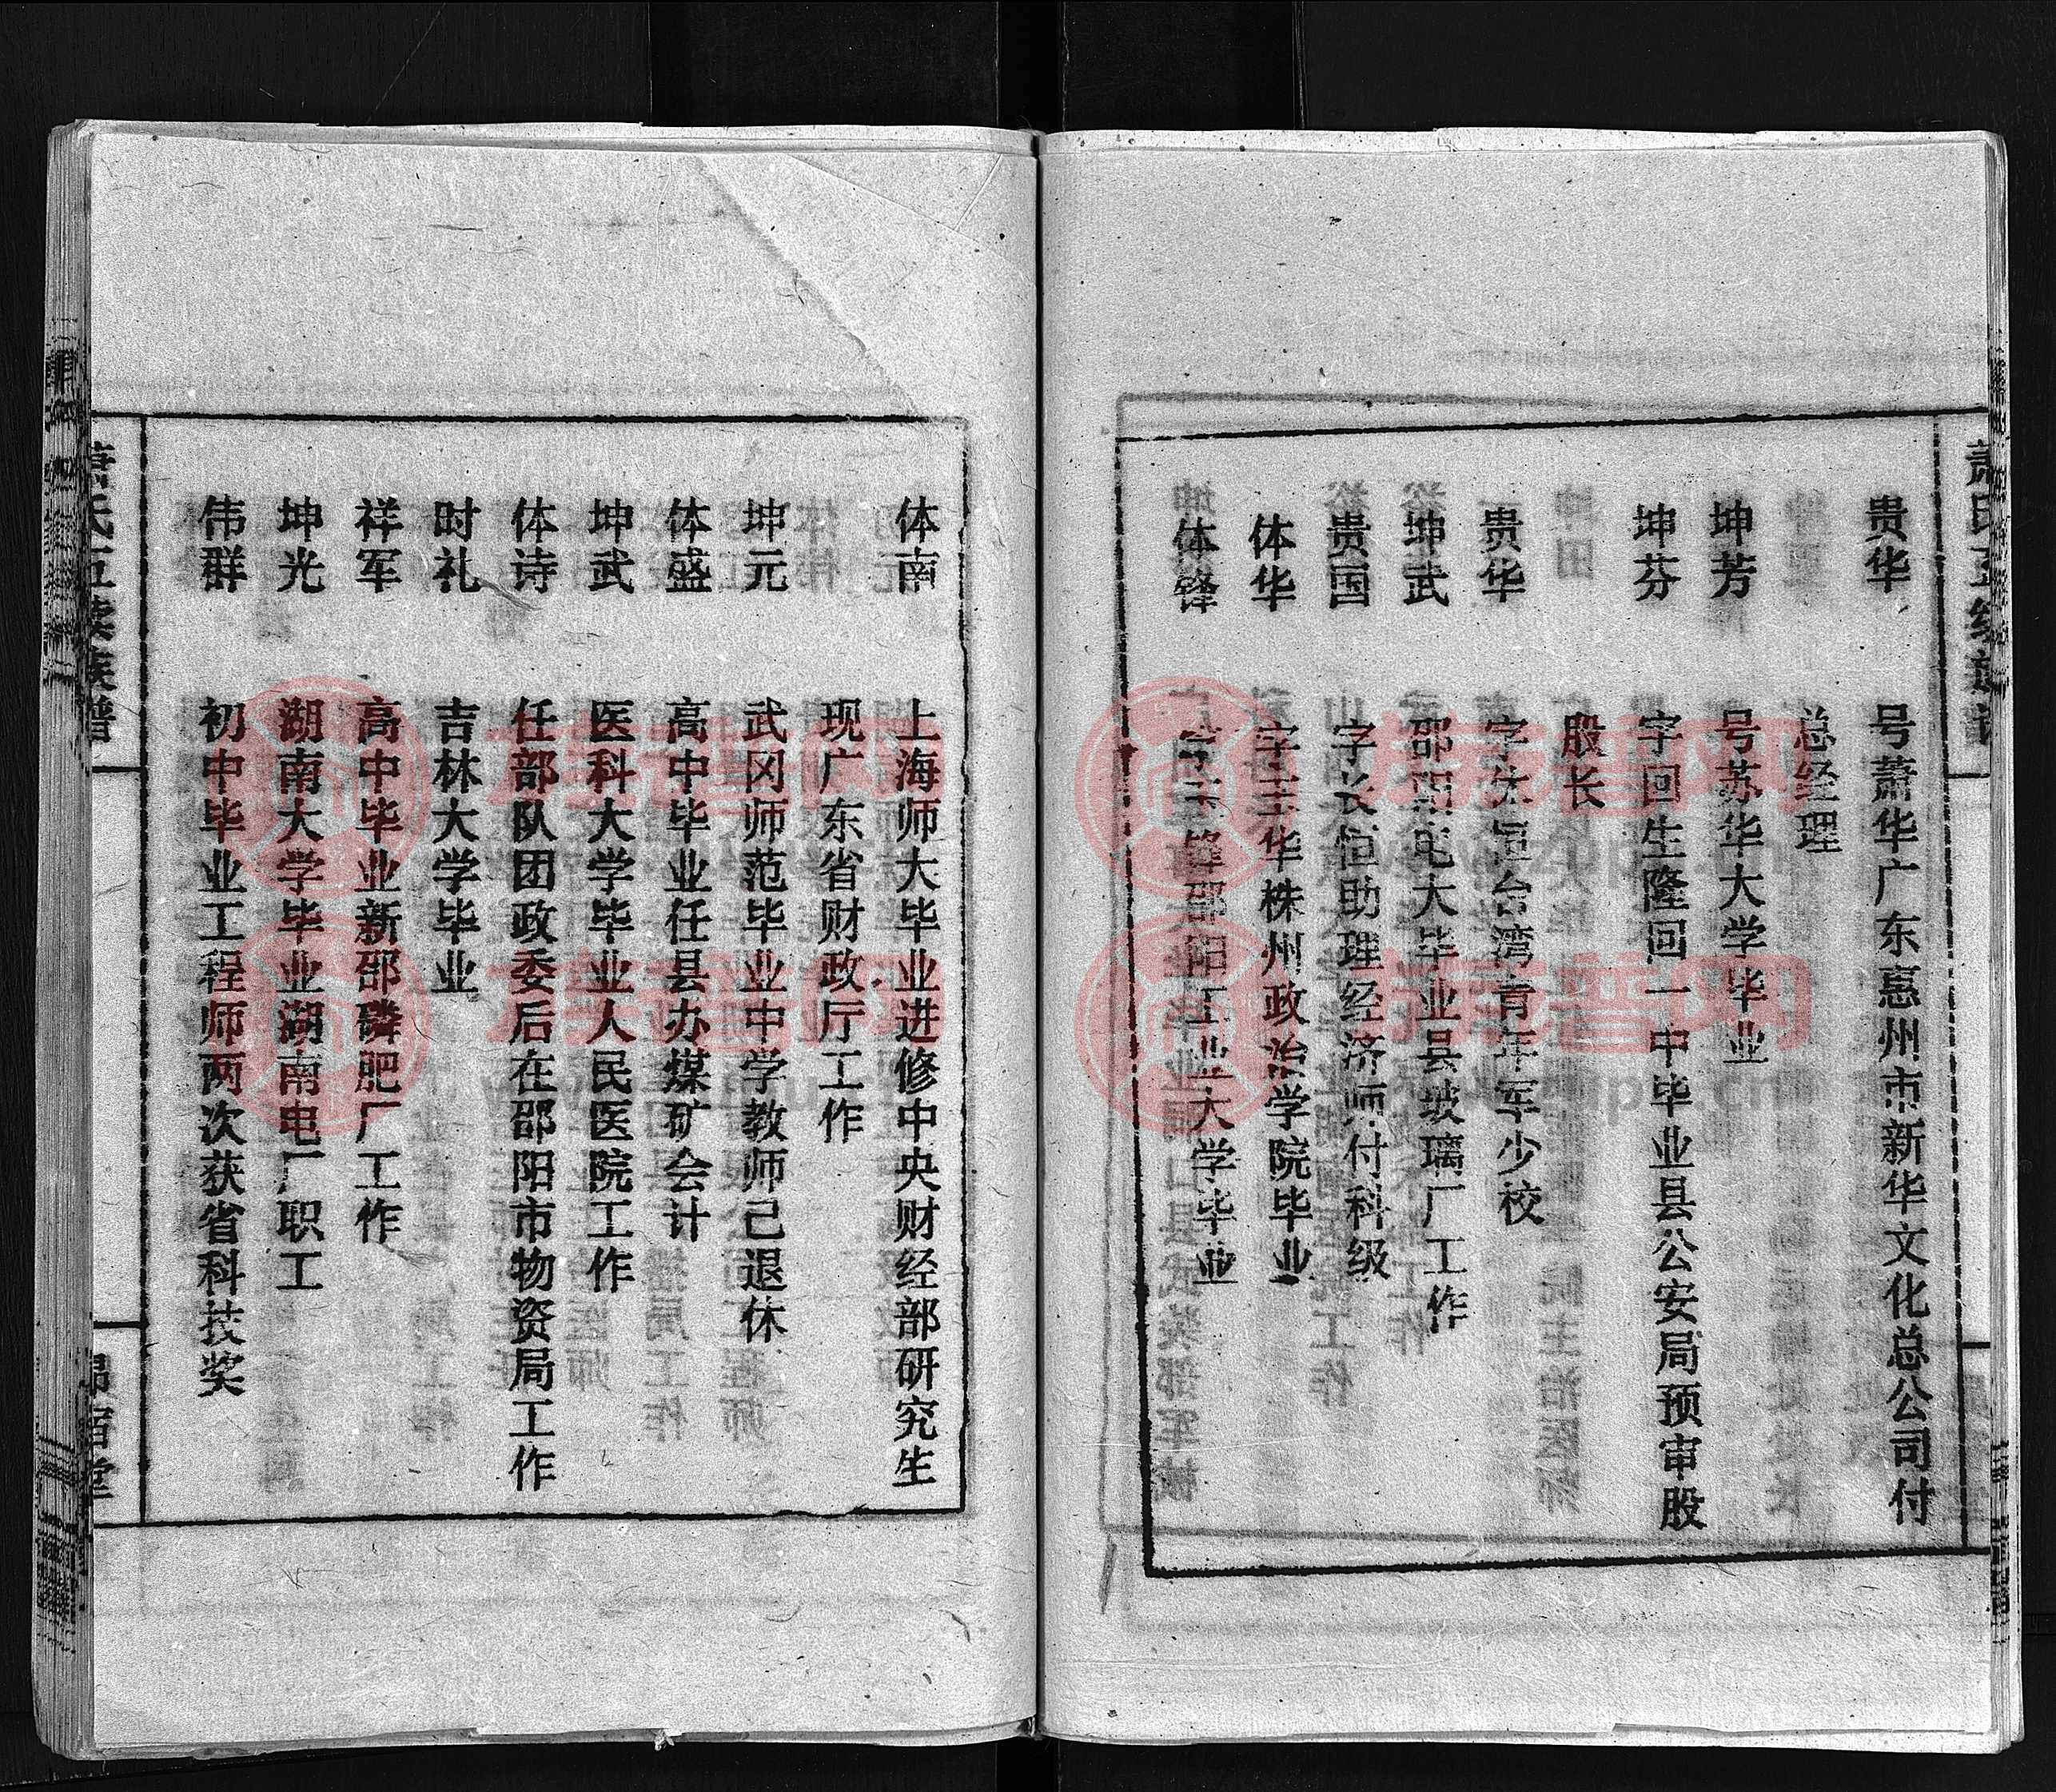 贵华 号萧华广东惠州市新华文化总公司付
总经理
坤芳 号苏华大学毕业
坤芬 字回生隆回一中毕业县公安局预审股
股长
贵华 字先恒台湾青年军少校
坤武 邵阳电大毕业县玻璃厂工作
贵国 字长恒助理经济师付科级
体华 字王华株州政治学院毕业
体锋 字王锋邵阳工业大学毕业
体南 上海师大毕业进修中央财经部研究生
现广东省财政厅工作
坤元 武冈师范毕业中学教师己退休
体盛 高中毕业任县办煤矿会计
坤武 医科大学毕业人民医院工作
体诗 任部队团政委后在邵阳市物资局工作
时礼 吉林大学毕业
祥军 高中毕业新邵磷肥厂工作
坤光 湖南大学毕业湖南电厂职工
伟群 初中毕业工程师两次获省科技奖
族谱网
族谱网
族谱网
族谱网